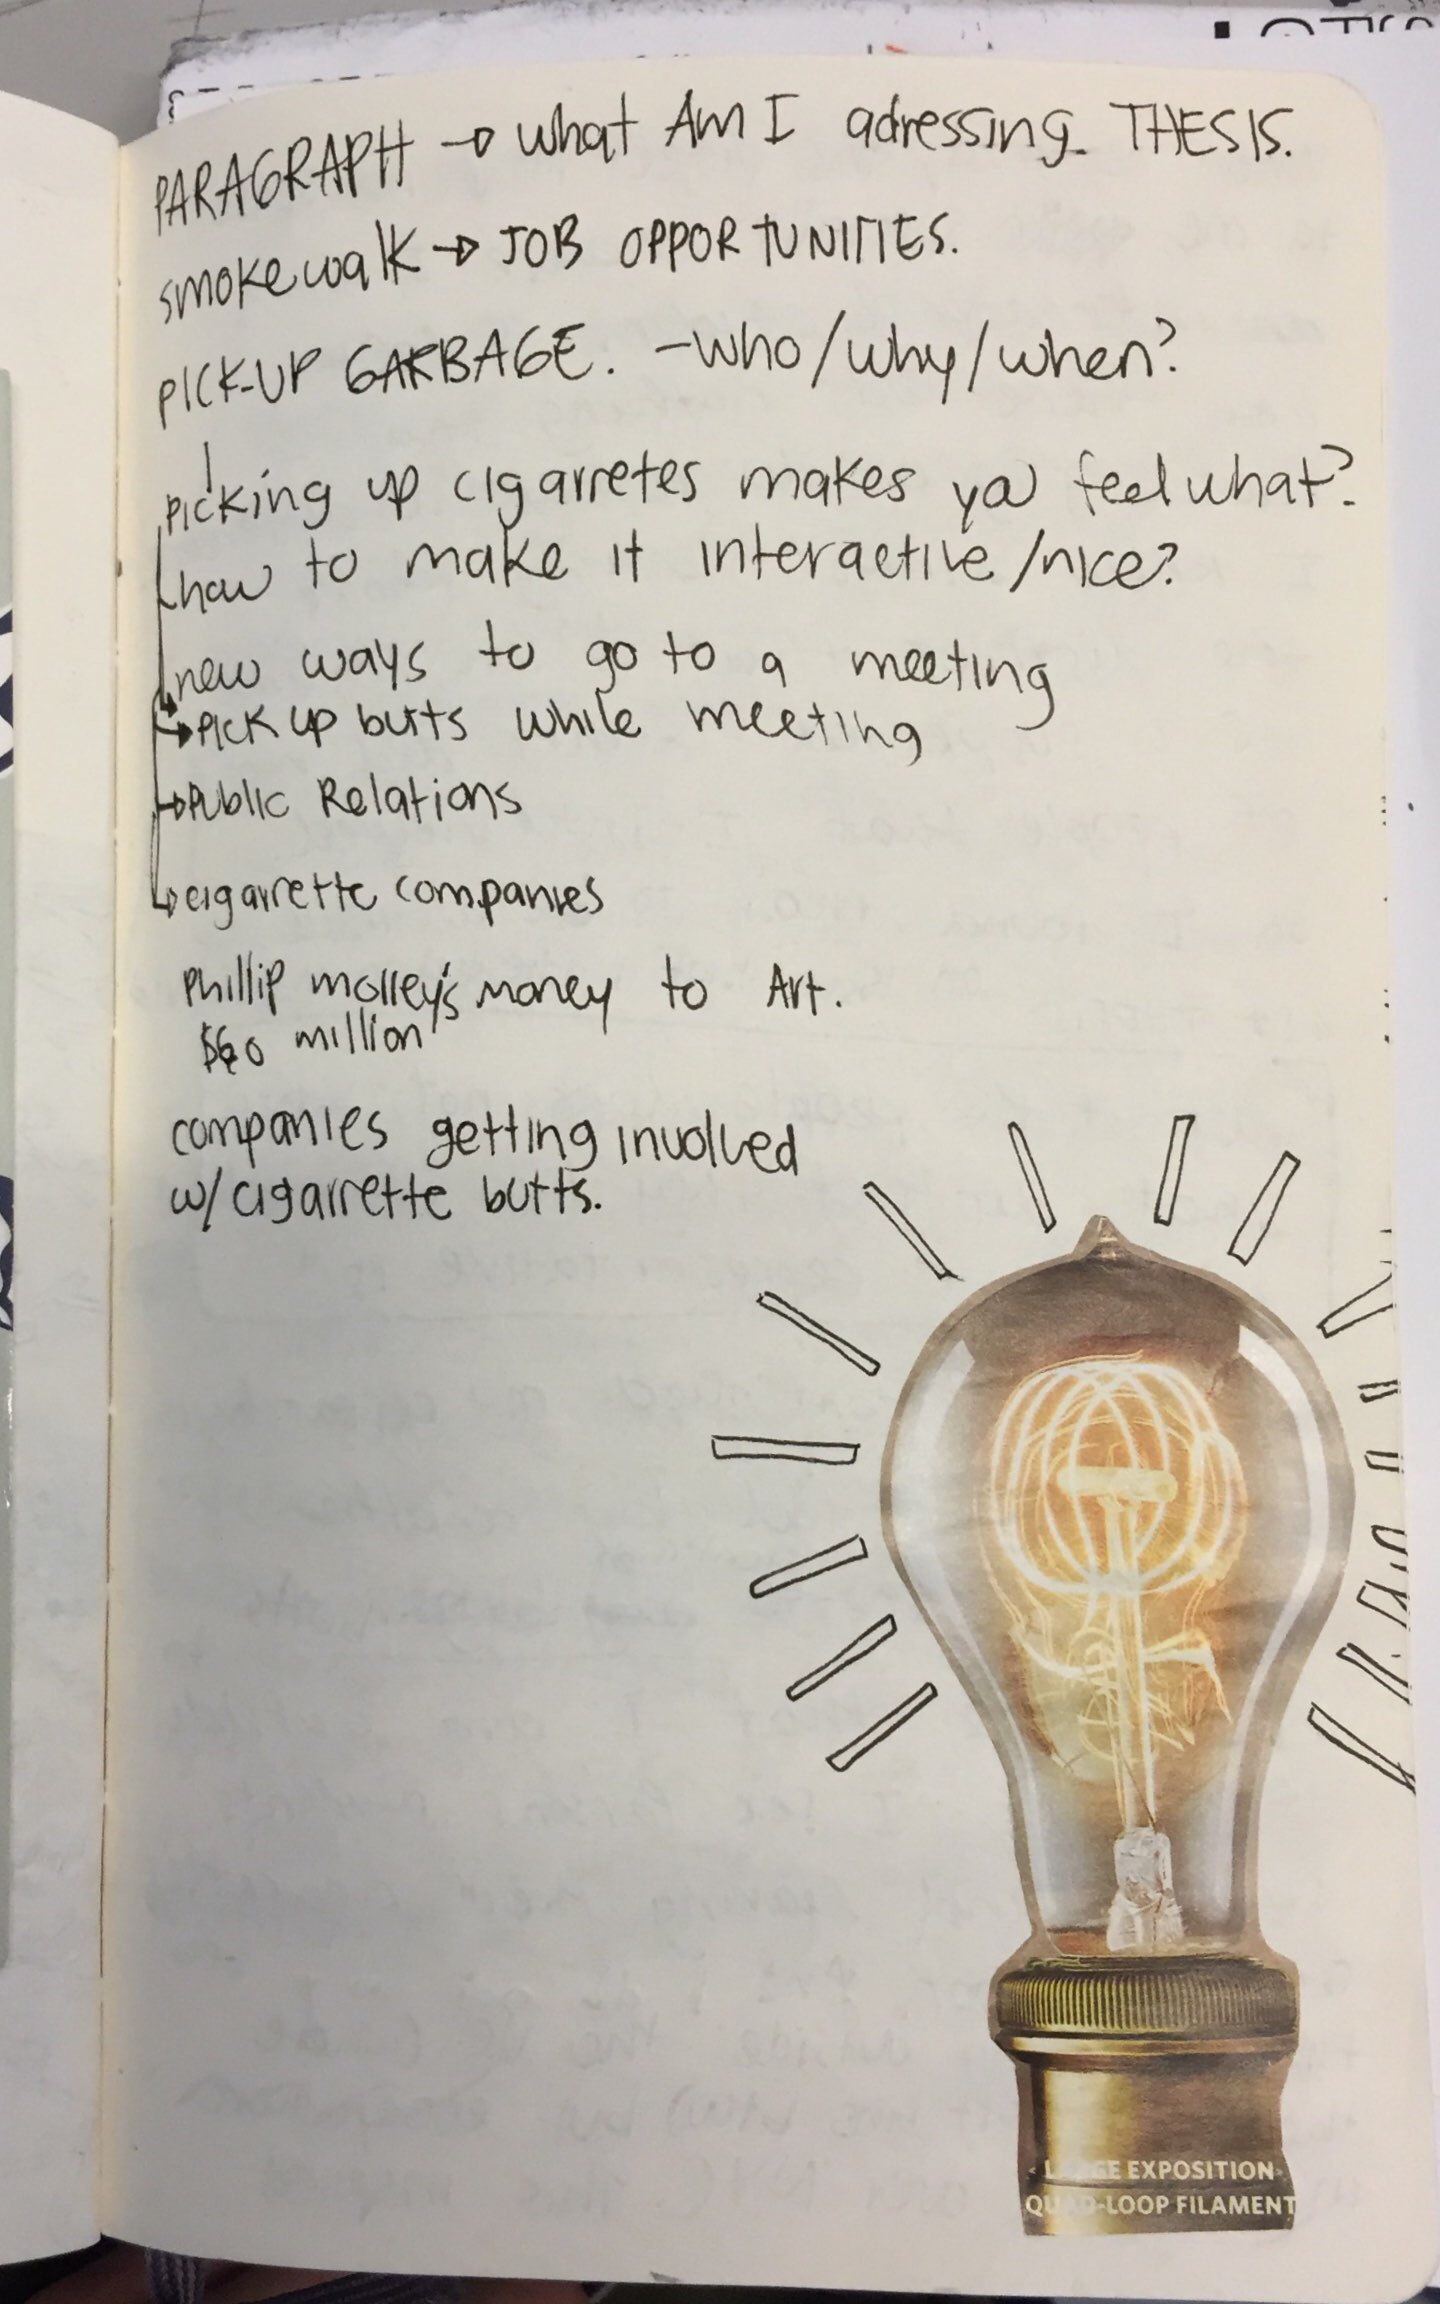 PARAGRAPH → what Am I adressing. THESIS.
smokewalk → JOB OPPORTUNITIES.
PICK-UP GARBAGE. -who/why/when?
picking up cigarretes makes you feel what?
how to make it interactive/nice?
new ways to go to a meeting
→ PICK up butts while meeting
→ Public Relations
→ cigarrette companies
Phillip molley's money to Art.
$60 million
companies getting involved
w/ cigarrette butts.
EXPOSITION
QUAD-LOOP FILAMENT